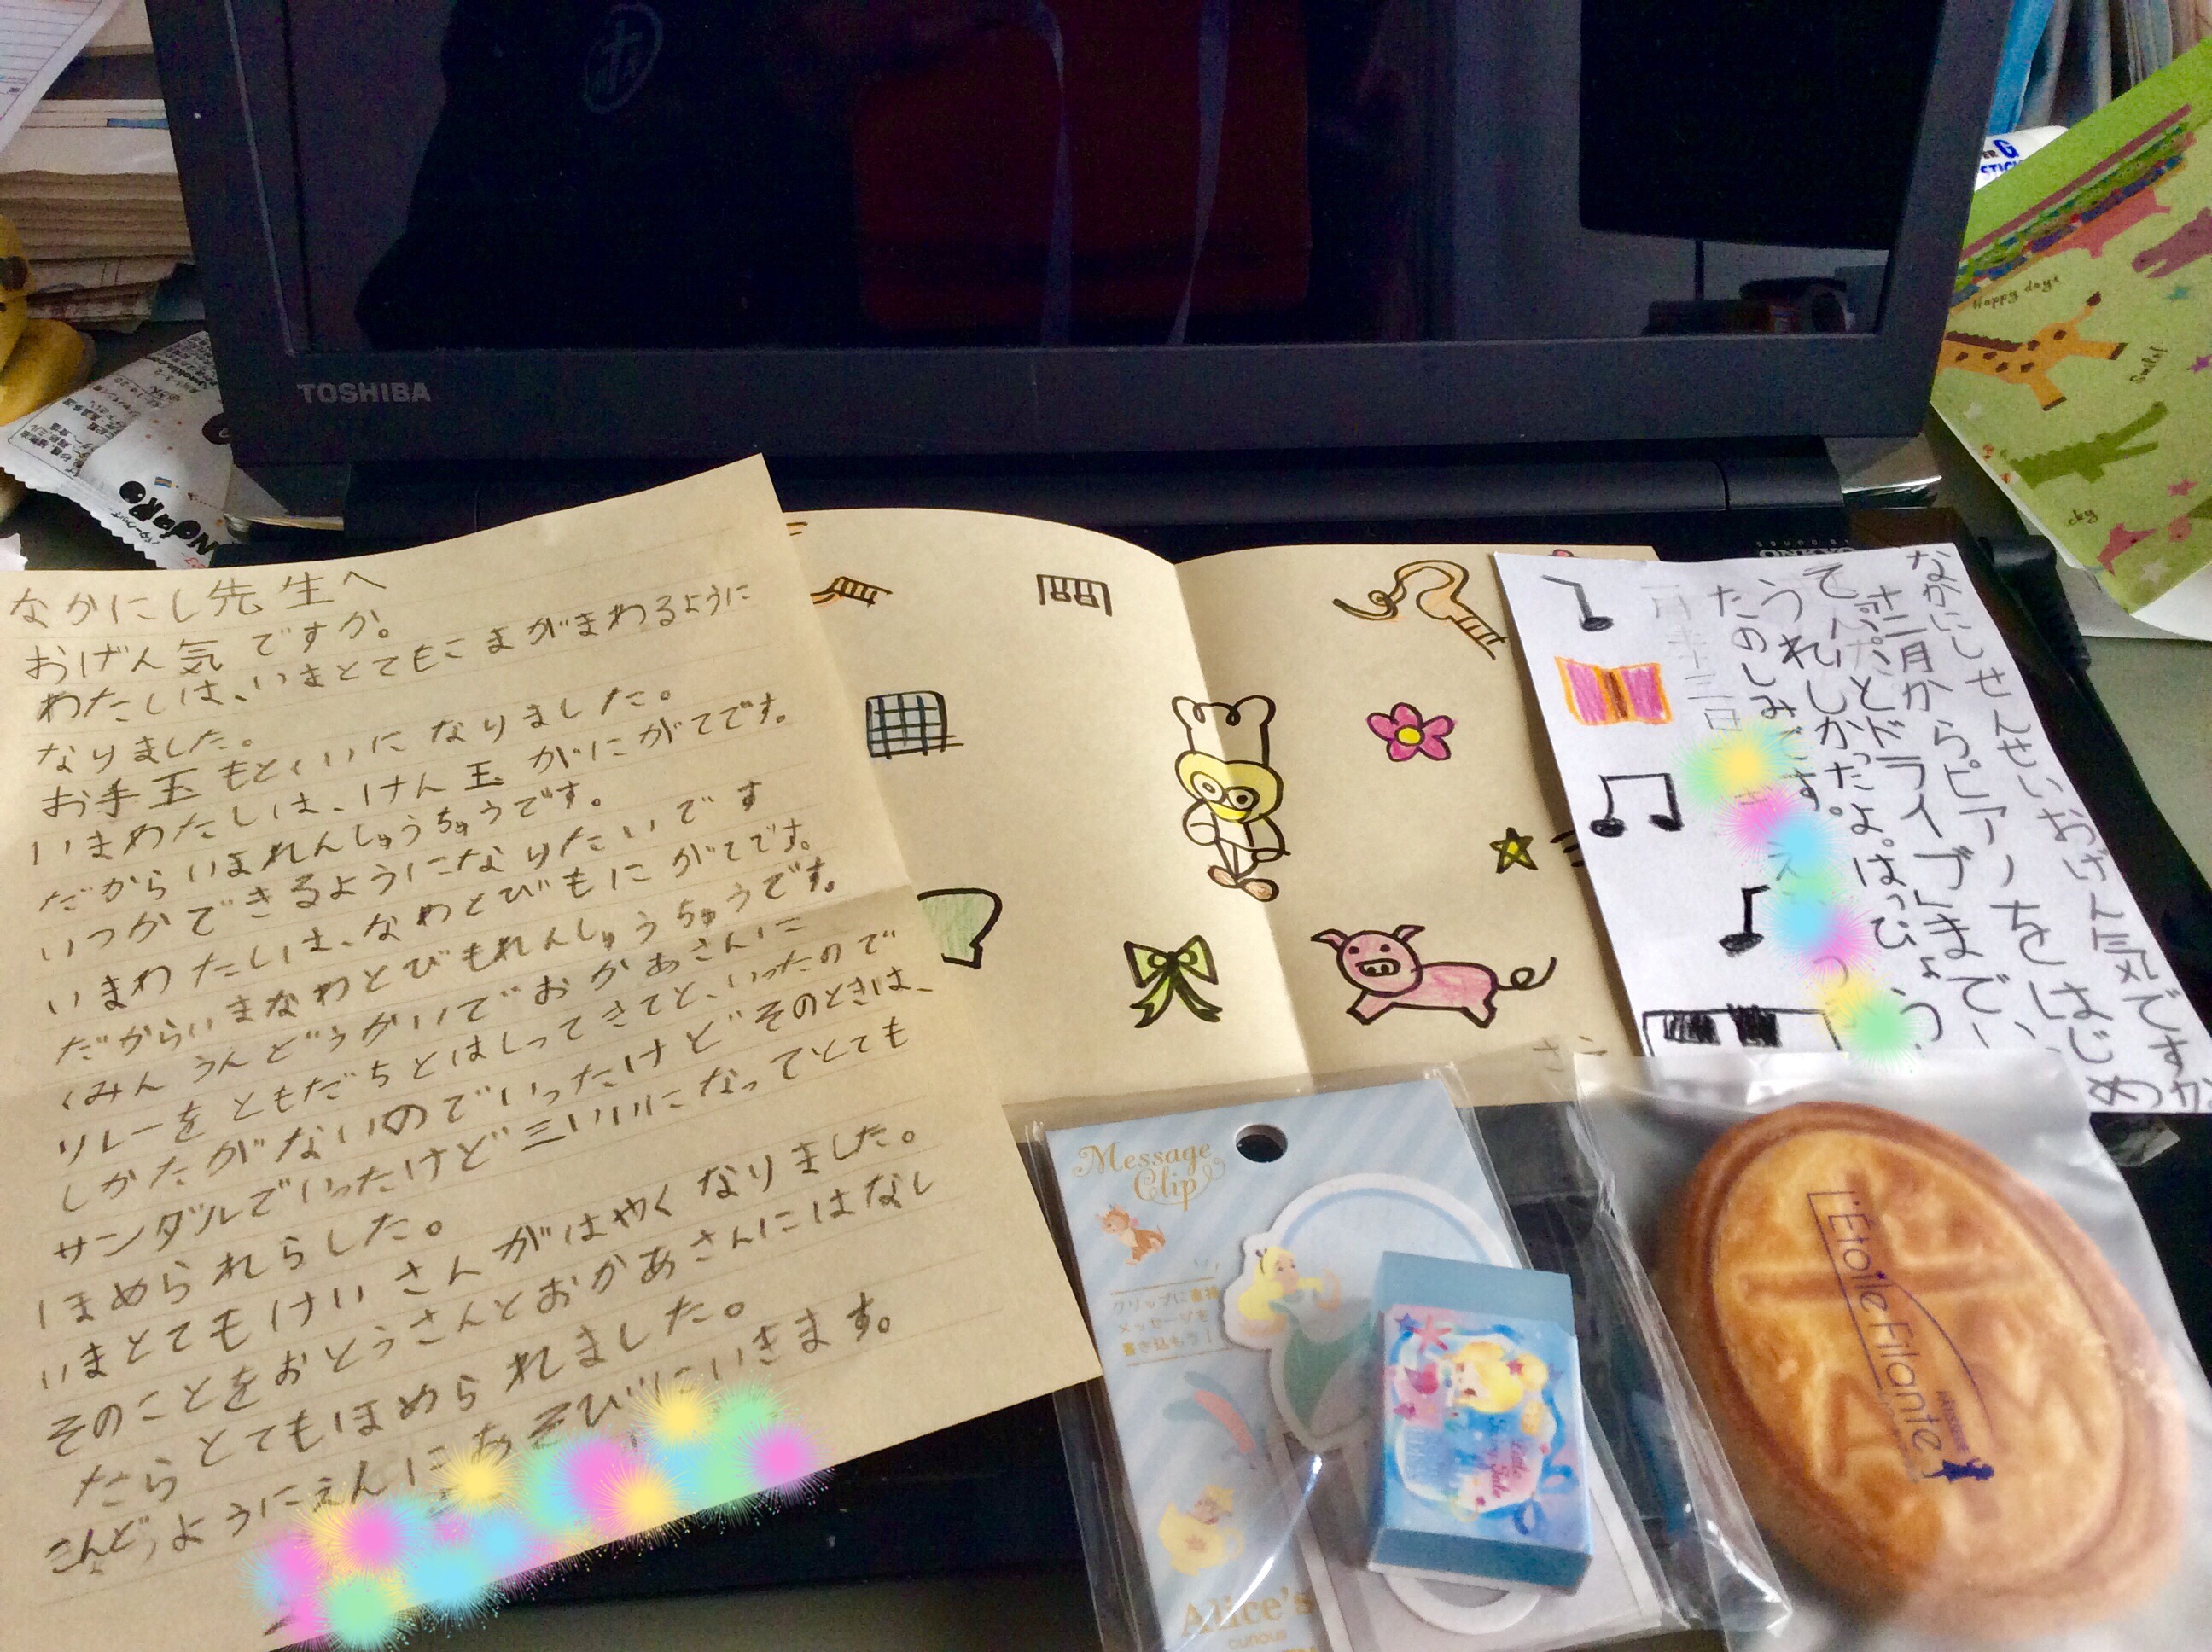 TOSHIBA
なかにし先生へ
おげん気ですか。
わたしは、いまとてもこまがまわるように
なりました。
お手玉もとくいになりました。
いまわたしは、けん玉がにがてです。
だからいまれんしゅうちゅうです。
いつかできるようになりたいです
いまわたしは、なわとびもにがてです。
だからいまなわとびもれんしゅうちゅうです。
くみんうんどうかいでおかあさんに
リレーをともだちとはしってきてと、いったので
しかたがないのでいったけどそのときは、
サンダルでいったけど三いいになってとても
ほめられらした。
いまとてもけいさんがはやくなりました。
そのことをおとうさんとおかあさんにはなし
たらとてもほめられました。
こんど、ようにえんにあそびにいきます。
なかにしせんせいおげん気ですか
十二月からピアノをはじめ
て、
とドライブ」まで
うれしかったよ。はっぴょう
たのしみです。
Happy days
Smile!
Message
Clip
クリップに直接
メッセージを
書き込もう!
Alice's
curious
L'Étoile Filante